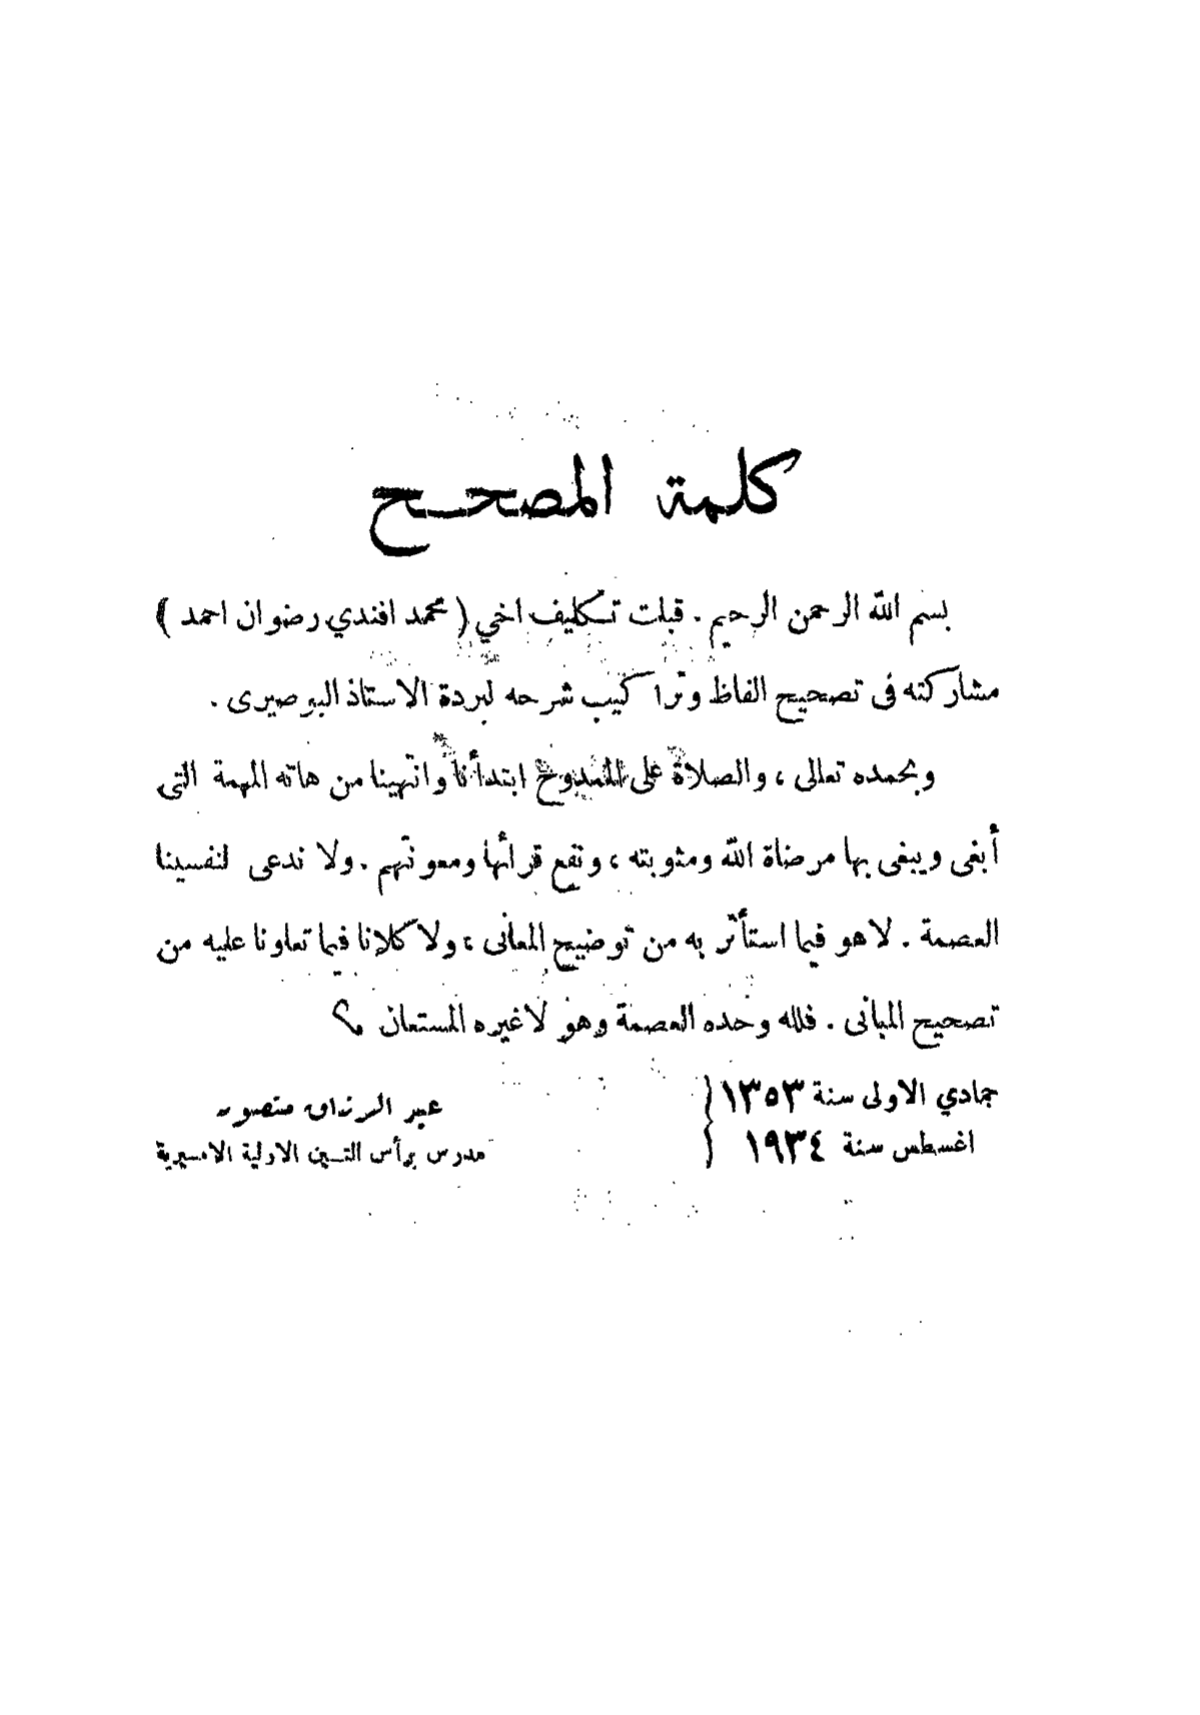 كلمة المصحح
بسم الله الرحمن الرحيم . قبلت تكليف اخي ( محمد افندي رضوان احمد )
مشاركته فى تصحيح الفاظ وتراكيب شرحه لبردة الاستاذ البوصيرى .
وبحمده تعالى ، والصلاة على الممدوح ابتدأنا وانتهينا من هاته المهمة التى
أبغى ويبغى بها مرضاة الله ومثوبته ، ونفع قرائها ومعونتهم . ولا ندعى لنفسينا
العصمة . لا هو فيما استأثر به من توضيح المعانى ، ولا كلانا فيما تعاونا عليه من
تصحيح المبانى . فلله وحده العصمة وهو لا غيره المستعان
جمادي الاولى سنة ١٣٥٣
اغسطس سنة ١٩٣٤
عبد الرزاق منصور
مدرس برأس التين الاولية الاميرية